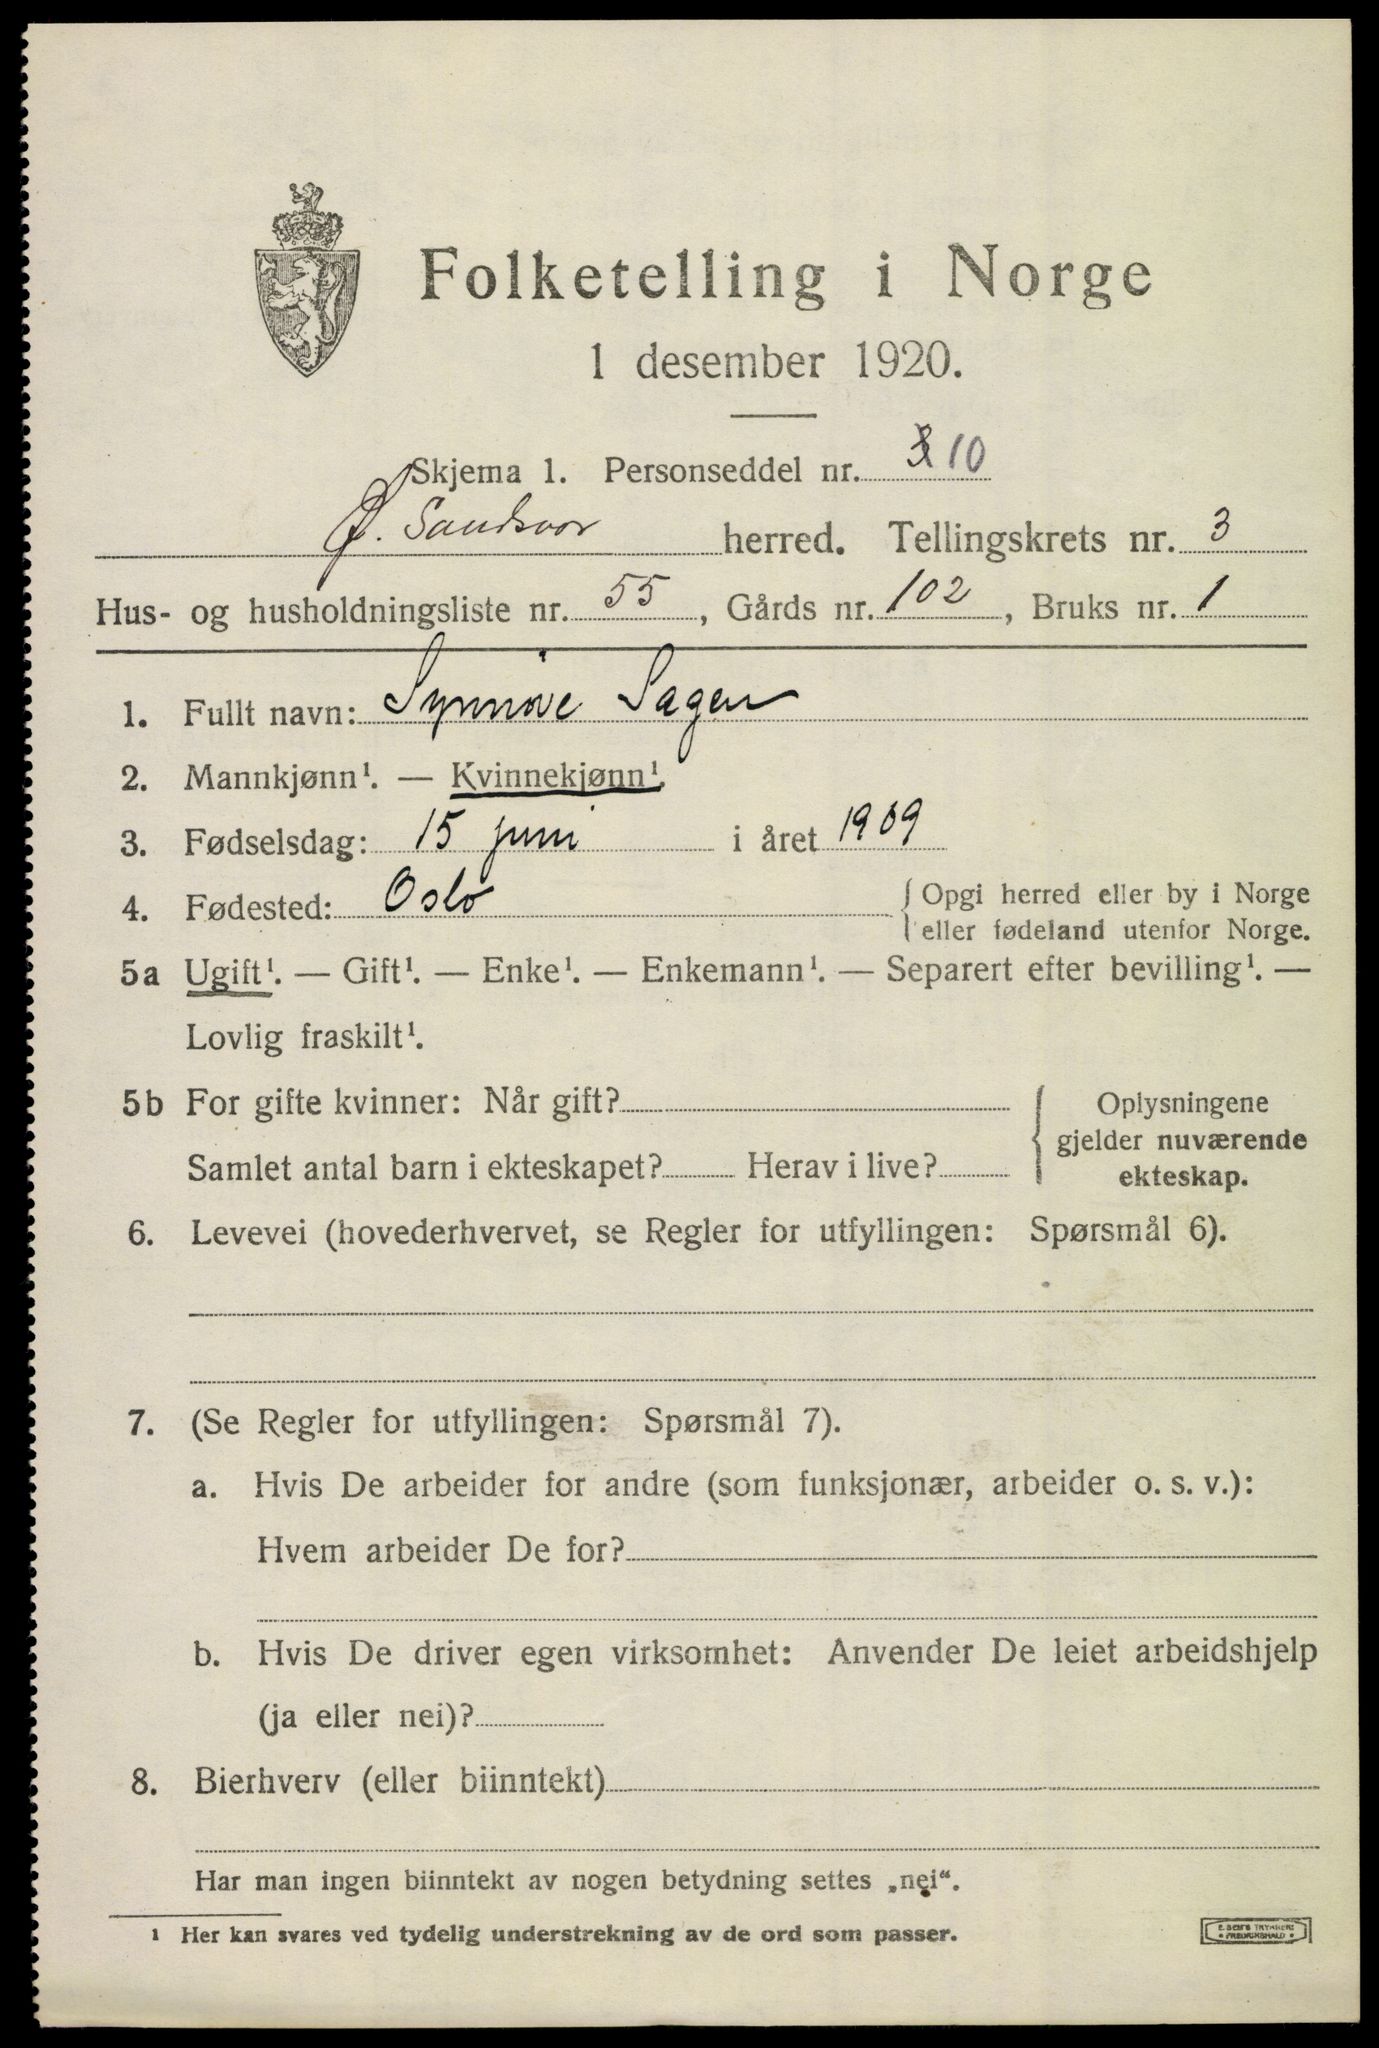 Folketelling i Norge
1 desember 1920.
Skjema 1. Personseddel nr. 3 10
Ø. Sandsvær herred. Tellingskrets nr. 3
Hus- og husholdningsliste nr. 55, Gårds nr. 102, Bruks nr. 1
1. Fullt navn: Synnøve Sagen
2. Mannkjønn¹. — Kvinnekjønn¹.
3. Fødselsdag: 15 juni i året 1909
4. Fødested: Oslo { Opgi herred eller by i Norge
eller fødeland utenfor Norge.
5a Ugift¹. — Gift¹. — Enke¹. — Enkemann¹. — Separert efter bevilling¹. —
Lovlig fraskilt¹.
5b For gifte kvinner: Når gift?
Samlet antal barn i ekteskapet? Herav i live?
Oplysningene
gjelder nuværende
ekteskap.
6. Levevei (hovederhvervet, se Regler for utfyllingen: Spørsmål 6).
7. (Se Regler for utfyllingen: Spørsmål 7).
a. Hvis De arbeider for andre (som funksjonær, arbeider o. s. v.):
Hvem arbeider De for?
b. Hvis De driver egen virksomhet: Anvender De leiet arbeidshjelp
(ja eller nei)?
8. Bierhverv (eller biinntekt)
Har man ingen biinntekt av nogen betydning settes „nei“.
¹ Her kan svares ved tydelig understrekning av de ord som passer.